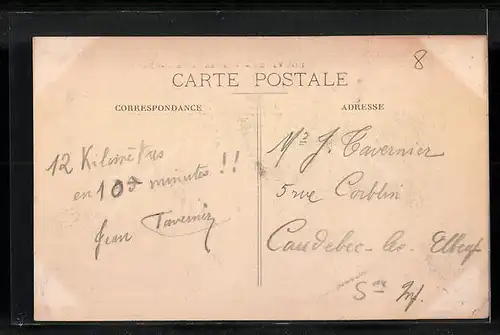 8
CARTE POSTALE
CORRESPONDANCE
ADRESSE
12 Kilomètres
en 107 minutes !!
Jean Tavernier
Mr J. Tavernier
5 rue Corblin
Caudebec-les-Elbeuf
Sne Inf.